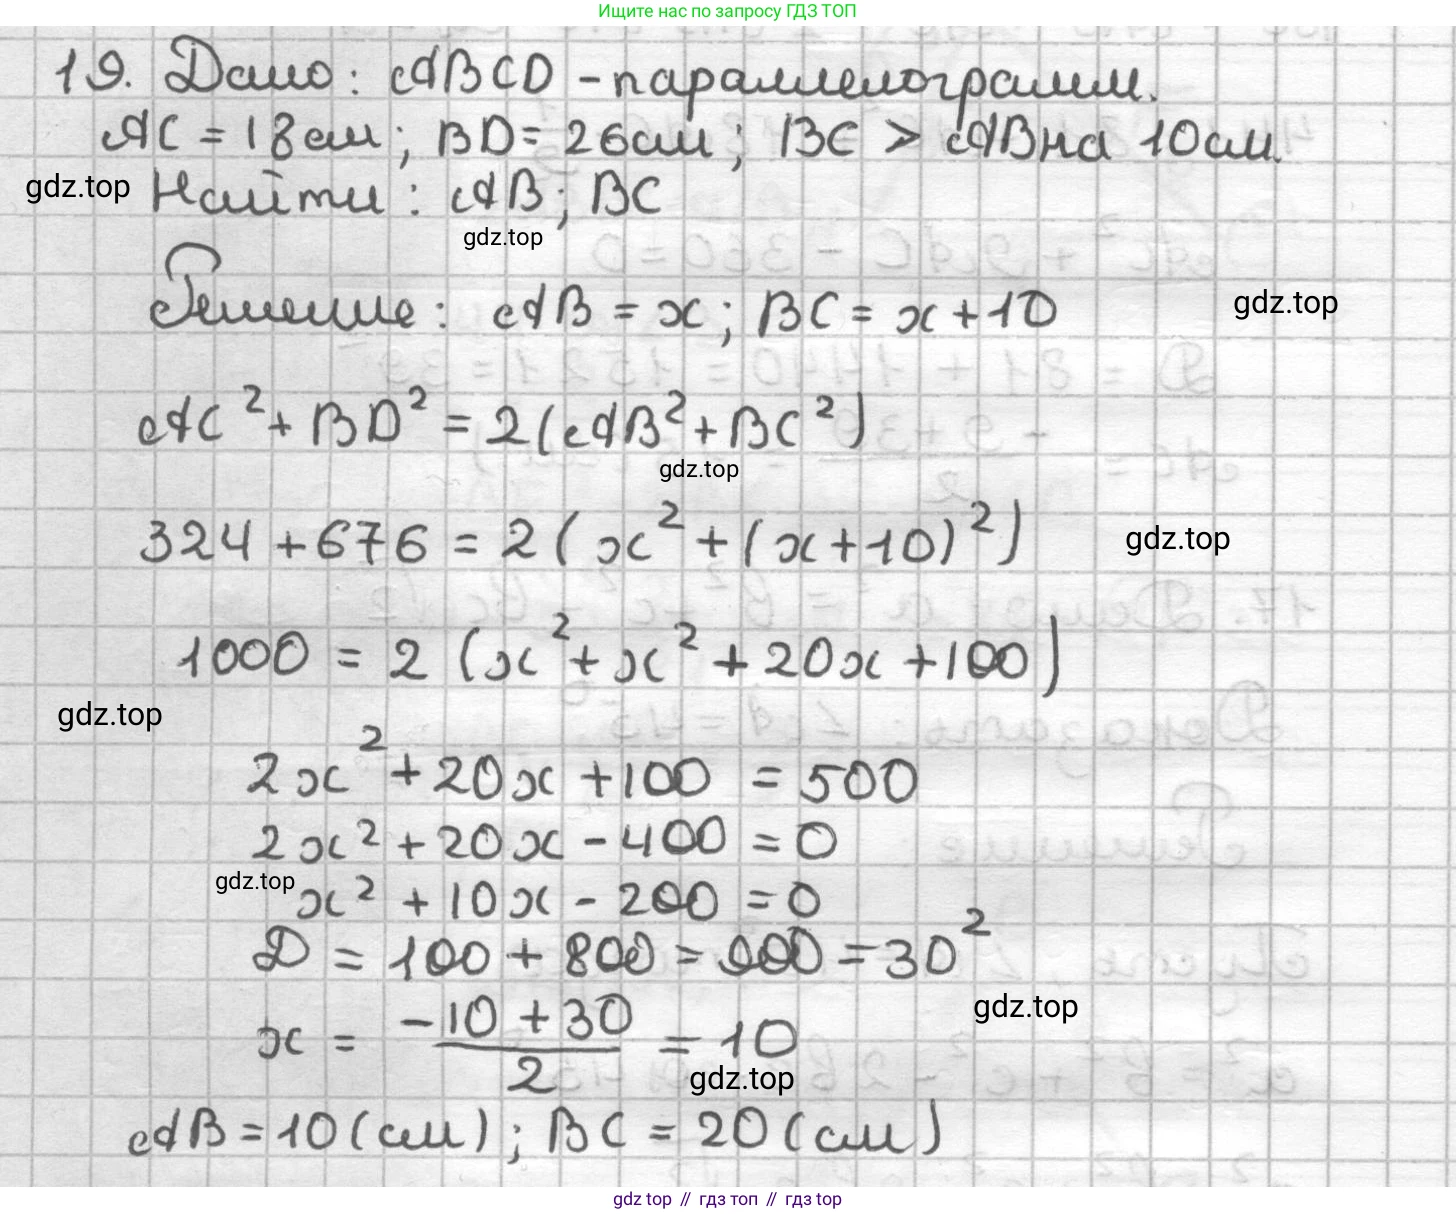 Ищите нас по запросу ГДЗ ТОП
19. Дано: ABCD - параллелограмм.
AC = 18см; BD = 26см; BC > AB на 10см.
gdz.top
Найти: AB; BC
gdz.top
Решение: AB = x; BC = x + 10
gdz.top
AC² + BD² = 2(AB² + BC²)
gdz.top
324 + 676 = 2(x² + (x + 10)²)
gdz.top
1000 = 2(x² + x² + 20x + 100)
gdz.top
2x² + 20x + 100 = 500
2x² + 20x - 400 = 0
gdz.top
x² + 10x - 200 = 0
Д = 100 + 800 = 900 = 30²
gdz.top
x = (-10 + 30)/2 = 10
gdz.top
AB = 10 (см); BC = 20 (см)
gdz top // гдз топ // гдз top